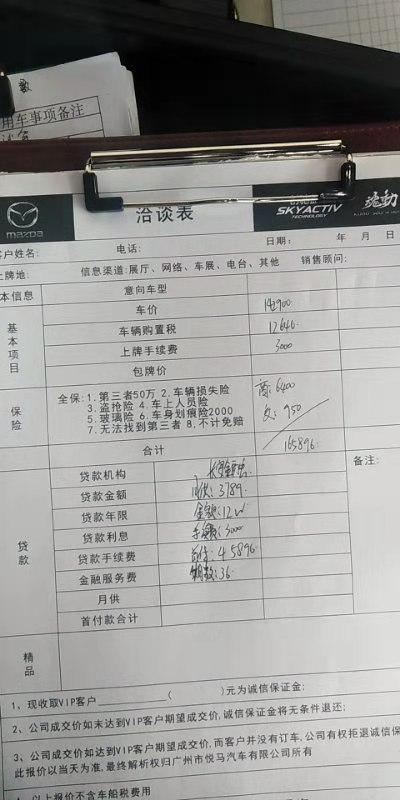 用车事项备注
洽谈表
mazda
SKYACTIV
TECHNOLOGY
魂動
客户姓名: 电话: 日期: 年 月 日
上牌地: 信息渠道:展厅、网络、车展、电台、其他 销售顾问:
本信息 意向车型
基本项目
车价 142900
车辆购置税 12646
上牌手续费 3000
包牌价
保险
全保:1.第三者50万 2.车辆损失险
3.盗抢险 4.车上人员险
5.玻璃险 6.车身划痕险2000
7.无法找到第三者 8.不计免赔
商:6400
交:950
合计 165896
备注:
贷款
贷款机构
贷款金额 月供:3789
贷款年限 金额:12W
贷款利息 手续费:3000
贷款手续费 首付:45896
金融服务费 期数:36
月供
首付款合计
精品
1、现收取VIP客户____________( )元为诚信保证金;
2、公司成交价如未达到VIP客户期望成交价,诚信保证金将无条件退还;
3、公司成交价如达到VIP客户期望成交价,而客户并没有订车,公司有权拒退诚信保
此报价以当天为准,最终解析权归广州市悦马汽车有限公司所有
、以上报价不含车船税费用